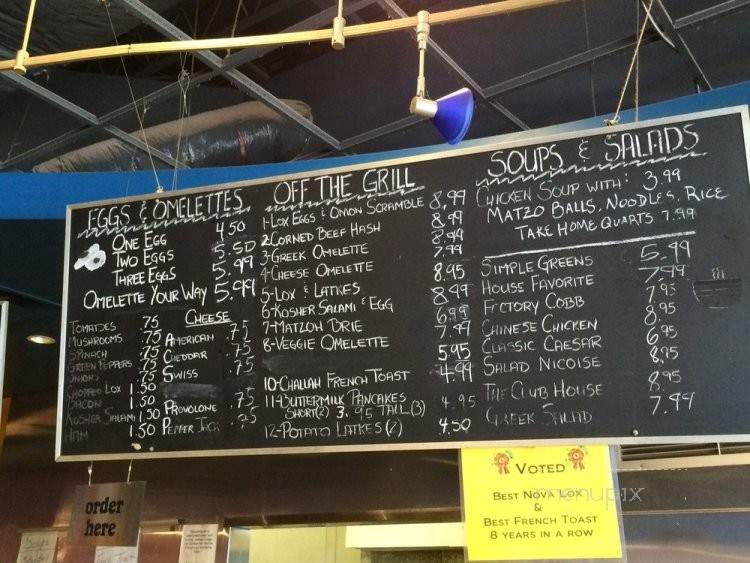 EGGS & OMELETTES
ONE EGG 4.50
TWO EGGS 5.50
THREE EGGS 5.99
OMELETTE YOUR WAY 5.99
TOMATOES .75
MUSHROOMS .75
SPINACH .75
GREEN PEPPERS .75
ONIONS .75
CHOPPED LOX 1.50
BACON 1.50
KOSHER SALAMI 1.50
HAM 1.50
CHEESE
AMERICAN .75
CHEDDAR .75
SWISS .75
PROVOLONE .75
PEPPER JACK .75
OFF THE GRILL
1-LOX EGGS & ONION SCRAMBLE 8.99
2.CORNED BEEF HASH 8.99
3-GREEK OMELETTE 8.99
4-CHEESE OMELETTE 7.99
5-LOX & LATKES 8.95
6-KOSHER SALAMI & EGG 8.99
7-MATZOH BRIE 6.99
8-VEGGIE OMELETTE 7.99
10-CHALLAH FRENCH TOAST 5.95
11-BUTTERMILK PANCAKES 4.99
SHORT(2) 3.95 TALL(3) 4.95
12-POTATO LATKES(2) 4.50
SOUPS & SALADS
CHICKEN SOUP WITH: 3.99
MATZO BALLS, NOODLES, RICE
TAKE HOME QUARTS 7.99
SIMPLE GREENS 5.99
HOUSE FAVORITE 7.99
FACTORY COBB 7.95
CHINESE CHICKEN 8.95
CLASSIC CAESAR 6.95
SALAD NICOISE 8.95
THE CLUB HOUSE 8.95
GREEK SALAD 7.99
order
here
VOTED
BEST NOVA LOX
&
BEST FRENCH TOAST
8 YEARS IN A ROW
menupix